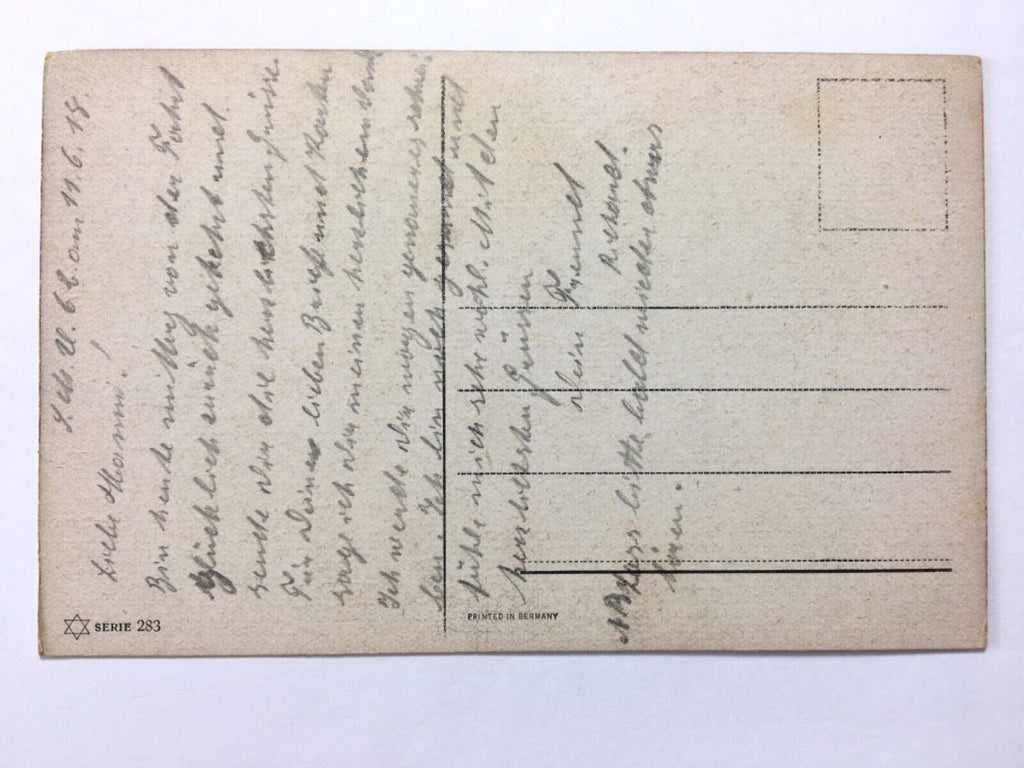 am 11.6.18.
Liebe Mami!
Bin heute mittag von der Fahrt
glücklich zurück gekehrt und
sende dir die herzlichsten Grüsse.
Für Deinen lieben Brief und Karten
sage ich dir meinen herzlichen Dank
Ich werde dir morgen genaueres schrei-
ben. Ich bin noch gesund und
fühle mich sehr wohl. Mit den
herzlichsten Grüssen
Dein Freund
Richard.
NB Lass bitte bald wieder etwas
hören.
SERIE 283
PRINTED IN GERMANY